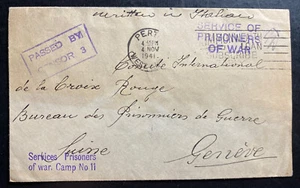 written in Italian
SERVICE OF
PRISONERS
OF WAR
PASSED BY
3
PERT
4 NOV
1941
Comité International
de la Croix Rouge
Bureau des Prisonniers de Guerre
Suisse
Genève
Services Prisoners
of war. Camp No 11